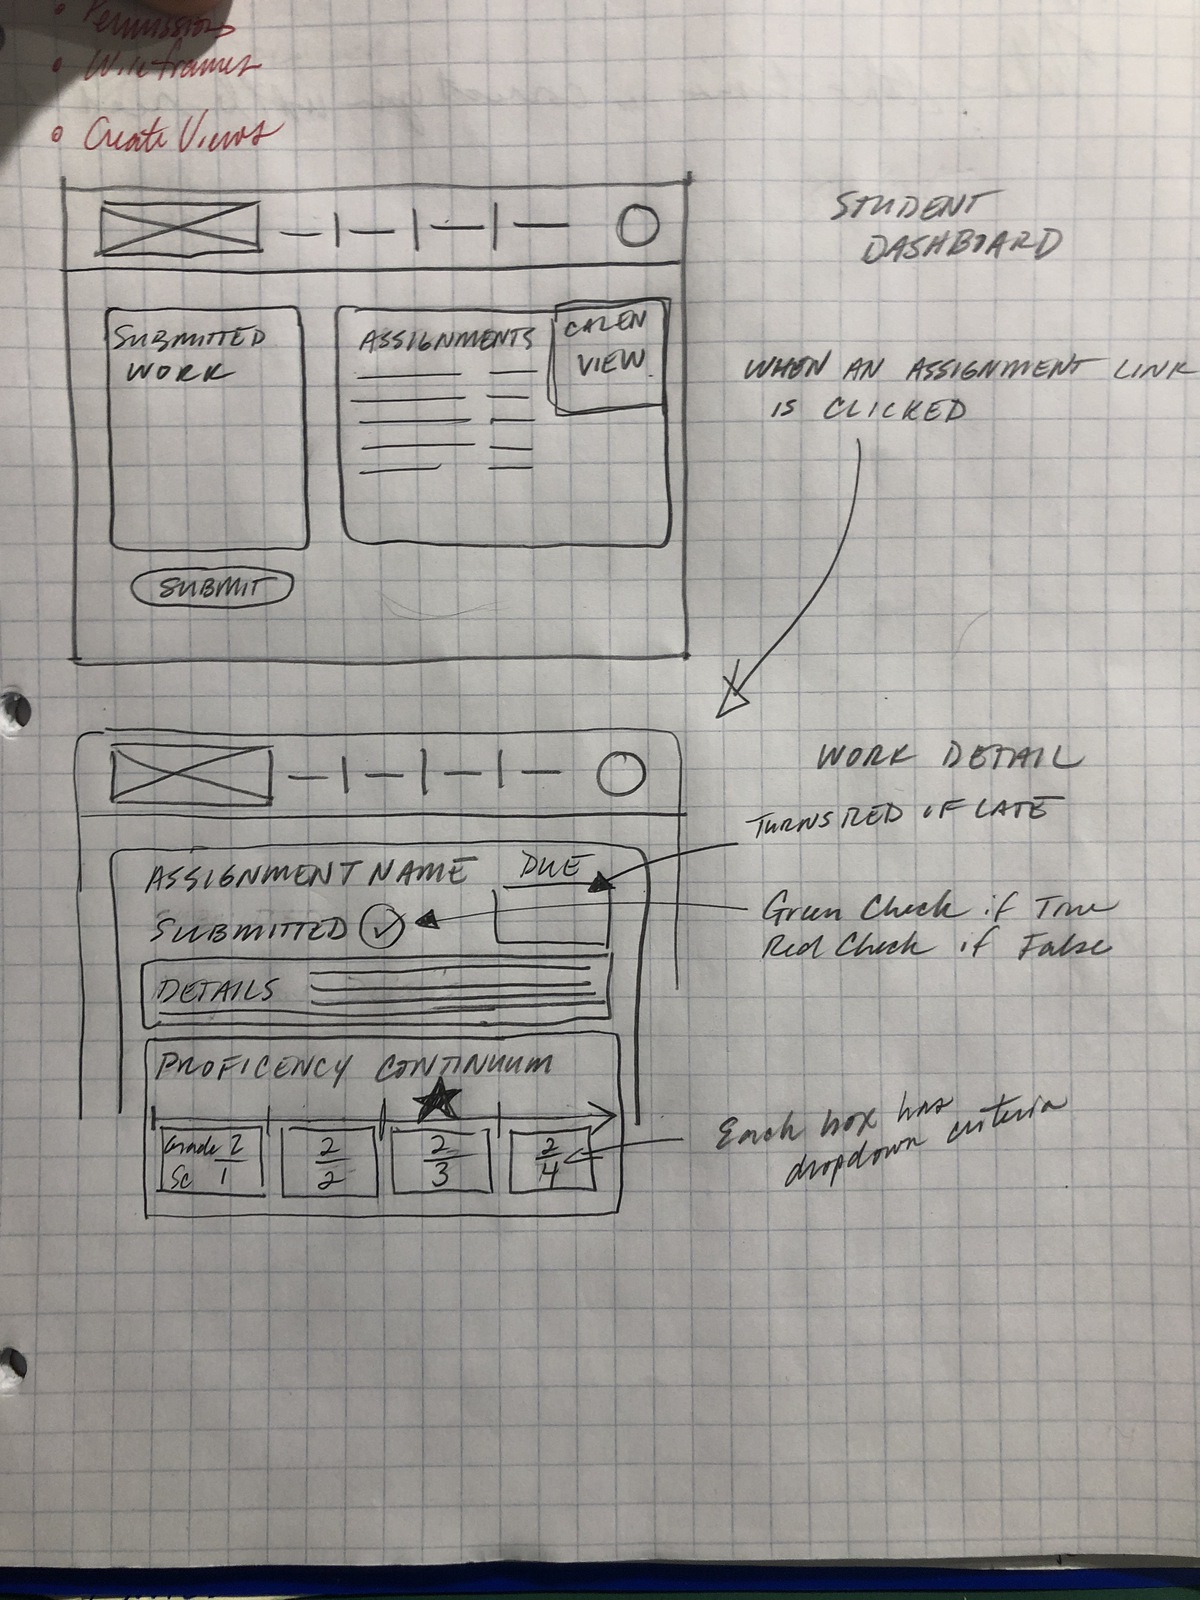 Permissions
Wireframes
Create Views
STUDENT
DASHBOARD
SUBMITTED
WORK
ASSIGNMENTS
CALEN
VIEW
SUBMIT
WHEN AN ASSIGNMENT LINK
IS CLICKED
WORK DETAIL
TURNS RED IF LATE
ASSIGNMENT NAME
DUE
SUBMITTED
Green Check if True
Red Check if False
DETAILS
PROFICENCY CONTINUUM
Grade 2
Sc 1
2
2
2
3
2
4
Each box has
dropdown criteria